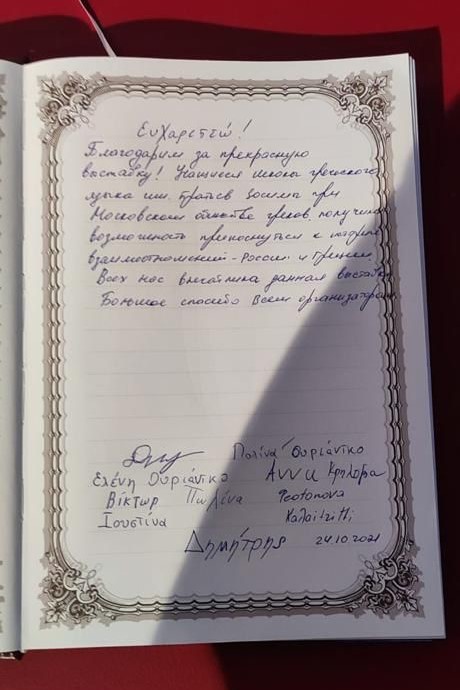 Ευχαριστώ!
Благодарим за прекрасную
выставку! Учащиеся школы греческого
языка им. братьев Зосима при
Московском обществе греков получили
возможность прикоснуться к истории
взаимоотношений - России и Греции.
Всех нас впечатлила данная выставка
Большое спасибо всем организаторам
Πολίνα Ουριάντκο
Ελένη Ουριάντκο Άννα Κρηλοβα
Βίκτωρ Παυλίνα
Ιουστίνα Kalaitzi
Δημήτρης 24.10.2021